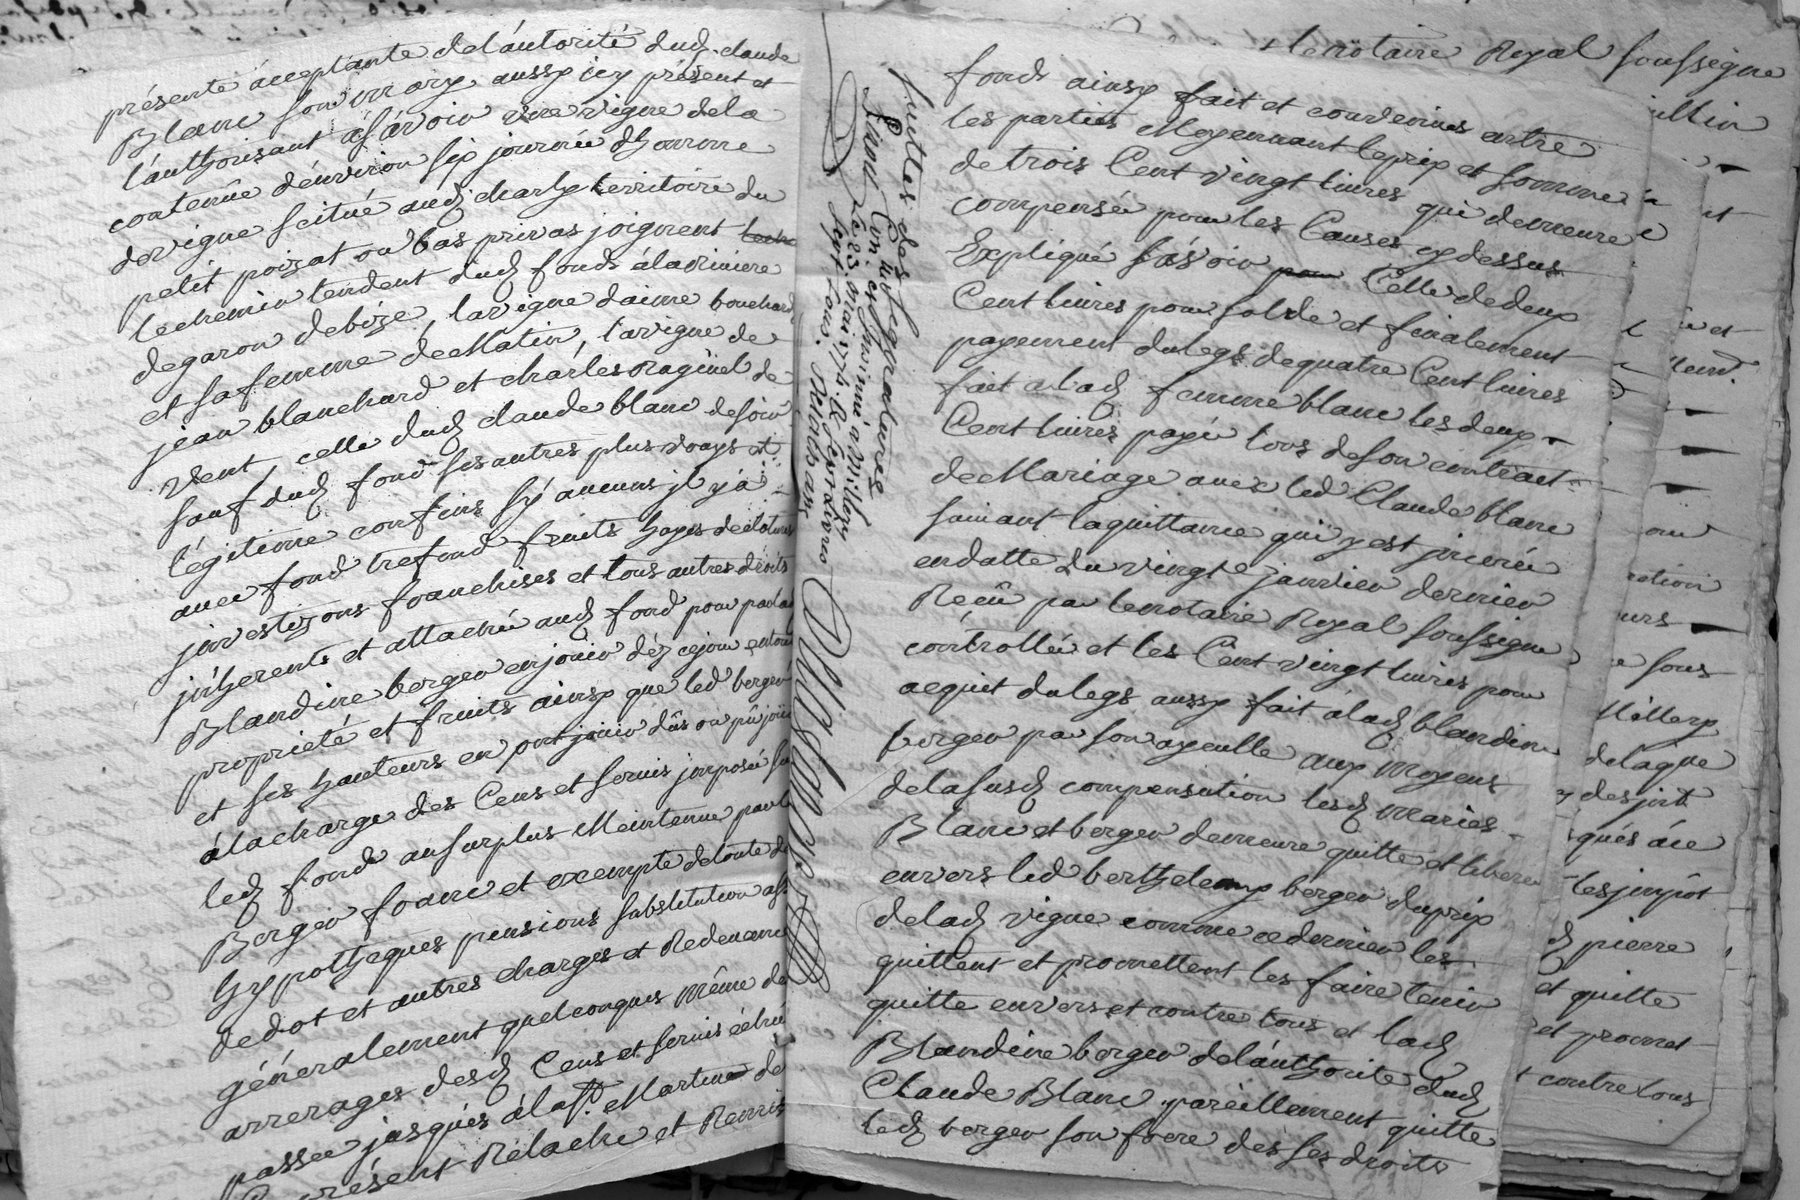 présente acceptante de l'autorité dud. claude
Blanc son mary aussy icy présent et
l'authorisant a sávoir une vigne de la
contenüe d'environ six journée d'homme
de vigne scitué aud. charly territoire du
petit poizat ou bas privas joignent
le chemin tendent dud. fonds á la riviere
de garon de bize, la vigne d'aimé bouchard
et sa femme de Matin, la vigne de
jean blanchard et charles Raginel de
vent, celle dud. claude blanc de soir
sauf dud. fond ses autres plus vrays et
légitime confins sy aucuns jl y á
avec fond trefond fruits hayes de clotures
jnvestizons franchises et tous autres droits
jnherents et attachée aud. fond pour par lad.
Blandine berger en jouir déz ce jour en toute
proprieté et fruits ainsy que led. berger
et ses hauteurs en ont joüir dûs ou pû joüir
á la charge des Cens et servis jmposée sur
led. fond au surplus Meintenue par led.
Berger franc et exempte de toute de
hypotheques pensions substitution
de dot et autres charges et Redevances
généralement quelconques même de
arrerages desd. Cens et servis échu
passée jusqués á la St. Martin de
présent Relache et Remis
fruittes des segn
Con et insinué a Millery
le 23 mai 1774 R.
sept sous.
fonds ainsy fait et convenus entre
les parties Moyennant le prix et somme
de trois Cent vingt livres qui demeure
compensée pour les Causes cy dessus
Expliqué sávoir Celle de deux
Cent livres pour solde et finalement
payement du legs de quatre Cent livres
fait a lad. femme blanc les deux
Cent livres payée lors de son contract
de Mariage avec led. Claude blanc
suivant la quittance qui y est jncerée
en datte du vingt janvier dernier
Reçû par le notaire Royal soussigne
controllée et les Cent vingt livres pour
acquit du legs aussy fait á lad. blandine
berger par son ayeulle aux moyens
de la susd. compensation lesd. mariés
Blanc et berger demeure quitte et libere
envers led. berthelemy berger du prix
de lad. vigne comme ce dernier les
quittent et promettent les faire tenir
quitte envers et contre tous et lad.
Blandine berger de l'authorité dud.
Claude Blanc pareillement quitte
led. berger son frere des ses droits
le notaire Royal soussigne
ration
urs
sous
Millery
delaque
qués áce
les jmpôt
d. pierre
et quitte
et promet
contre tous